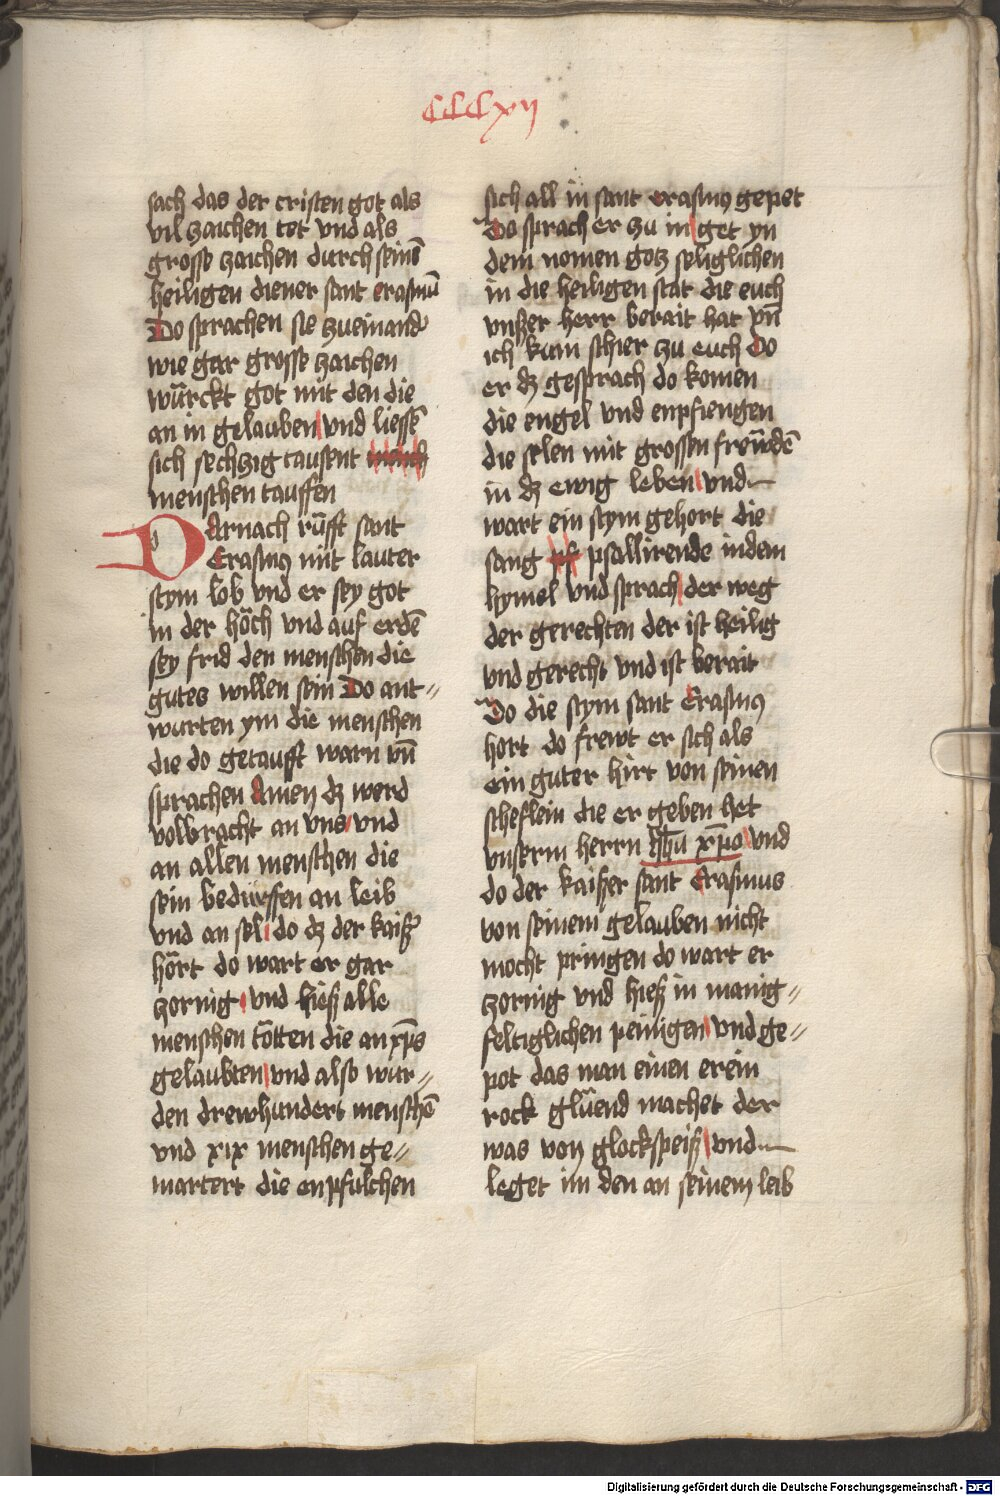 CCCxij
sach das der cristen got als
vil zaichen tet vnd als
grosse zaichen durch seinē
heiligen diener sant erasmū
Do sprachen sie zueinand̕
wie gar grosse zaichen
würckt got mit den die
an in gelauben vnd liessē
sich sechzig tausent mench
menschen tauffen
Darnach rüfft sant
Erasmꝰ mit lauter
stym lob vnd er sey got
in der höch vnd auf erdē
sey frid den menschen die
gutes willen sein Do ant⸗
wurten ym die menschen
die do getaufft warn vn̄
sprachen Amen dz werd
volbracht an vns vnd
an allen menschen die
sein bedürffen an leib
vnd an sel do dz der kaiß̕
hört do wart er gar
zornig vnd hieß alle
menschen tötten die an xp̄s
gelaubten vnd also wur⸗
den drewhundert menschē
vnd xix menschen ge⸗
martert die enpfulchen
sich all in sant erasmꝰ gepet
Do sprach er zu in get yn
dem nomen gotz seliglichen
in die heiligen stat die euch
vnßer herr berait hat vn̄
ich kum schier zu euch Do
er dz gesprach do komen
die engel vnd enpfiengen
die selen mit grossen freüdē
in dz ewig leben vnd
wart ein stym gehort die
sang pf psallirende in dem
hymel vnd sprach der weg
der gerechten der ist heilig
vnd gerecht vnd ist berait
Do die stym sant Erasmꝰ
hort do frewt er sich als
ein guter hirt von seinen
scheflein die er geben het
vnserm herrn ihū xp̄o vnd
do der kaißer sant Erasmus
von seinem gelauben nicht
mocht pringen do wart er
zornig vnd hieß in manig⸗
feltiglichen peinigen vnd ge⸗
pot das man einen erein
rock glüend machet der
was von glockspeiß vnd
leget im den an seinem leib
Digitalisierung gefördert durch die Deutsche Forschungsgemeinschaft - DFG